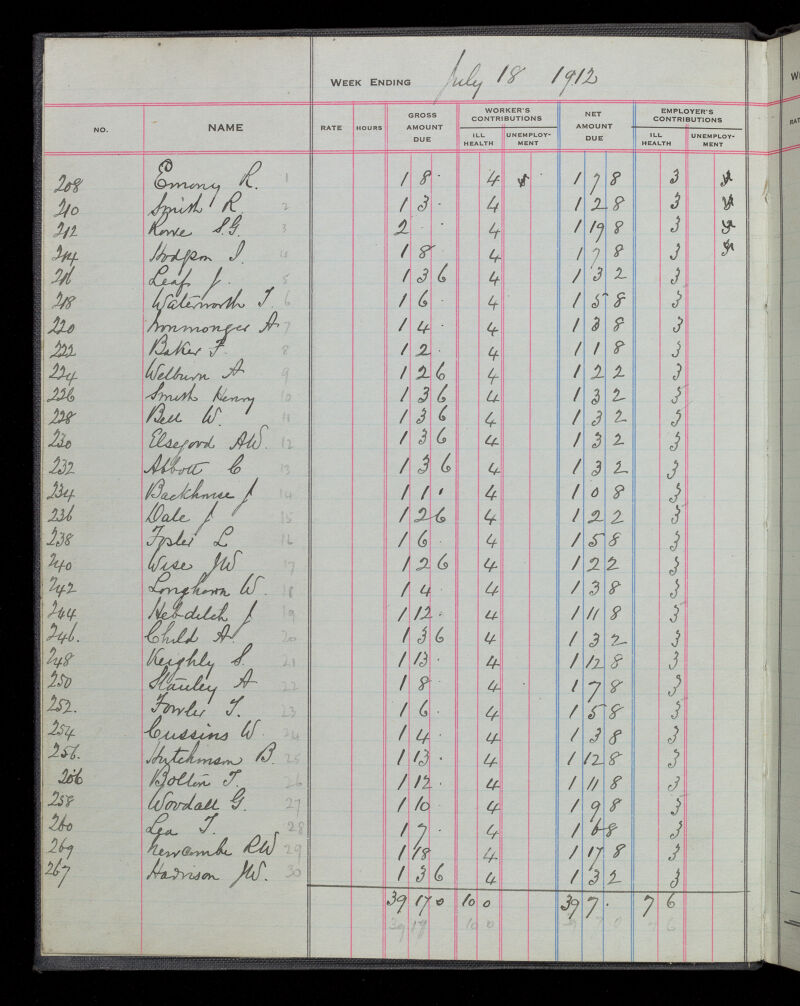 WEEK ENDING July 18 1912
NO. NAME RATE HOURS GROSS AMOUNT DUE WORKER'S CONTRIBUTIONS ILL HEALTH UNEMPLOY-MENT NET AMOUNT DUE EMPLOYER'S CONTRIBUTIONS ILL HEALTH UNEMPLOY-MENT
208 Emony R. 1 1 8 · 4 1 7 8 3
210 Smith R 2 1 3 · 4 1 2 8 3
212 Rowe S.G. 3 2 · · 4 1 19 8 3
214 Hodgson J. 4 1 8 · 4 1 7 8 3
216 Leaf J. 5 1 3 6 4 1 3 2 3
218 Waterworth T 6 1 6 · 4 1 5 8 3
220 Ironmonger A 7 1 4 · 4 1 3 8 3
222 Baker F. 8 1 2 · 4 1 1 8 3
224 Welburn A 9 1 2 6 4 1 2 2 3
226 Smith Henry 10 1 3 6 4 1 3 2 3
228 Bell W. 11 1 3 6 4 1 3 2 3
230 Elsegood AW. 12 1 3 6 4 1 3 2 3
232 Abbott C 13 1 3 6 4 1 3 2 3
234 Backhouse J 14 1 1 · 4 1 0 8 3
236 Dale J 15 1 2 6 4 1 2 2 3
238 Foster L 16 1 6 · 4 1 5 8 3
240 Wise JW 17 1 2 6 4 1 2 2 3
242 Longhorn W. 18 1 4 · 4 1 3 8 3
244 Hebditch J 19 1 12 · 4 1 11 8 3
246. Child A. 20 1 3 6 4 1 3 2 3
248 Keighly S. 21 1 13 · 4 1 12 8 3
250 Stanley A 22 1 8 · 4 1 7 8 3
252. Fowler T. 23 1 6 · 4 1 5 8 3
254 Cussins W. 24 1 4 · 4 1 3 8 3
256. Hutchinson B. 25 1 13 · 4 1 12 8 3
256 Bolton T. 26 1 12 · 4 1 11 8 3
258 Woodall G. 27 1 10 4 1 9 8 3
260 Lea T. 28 1 7 · 4 1 6 8 3
269 Newcombe RW 29 1 18 4 1 17 8 3
267 Harrison JW. 30 1 3 6 4 1 3 2 3
39 17 0 10 0 39 7 · 7 6
39 17 10 0 7 6